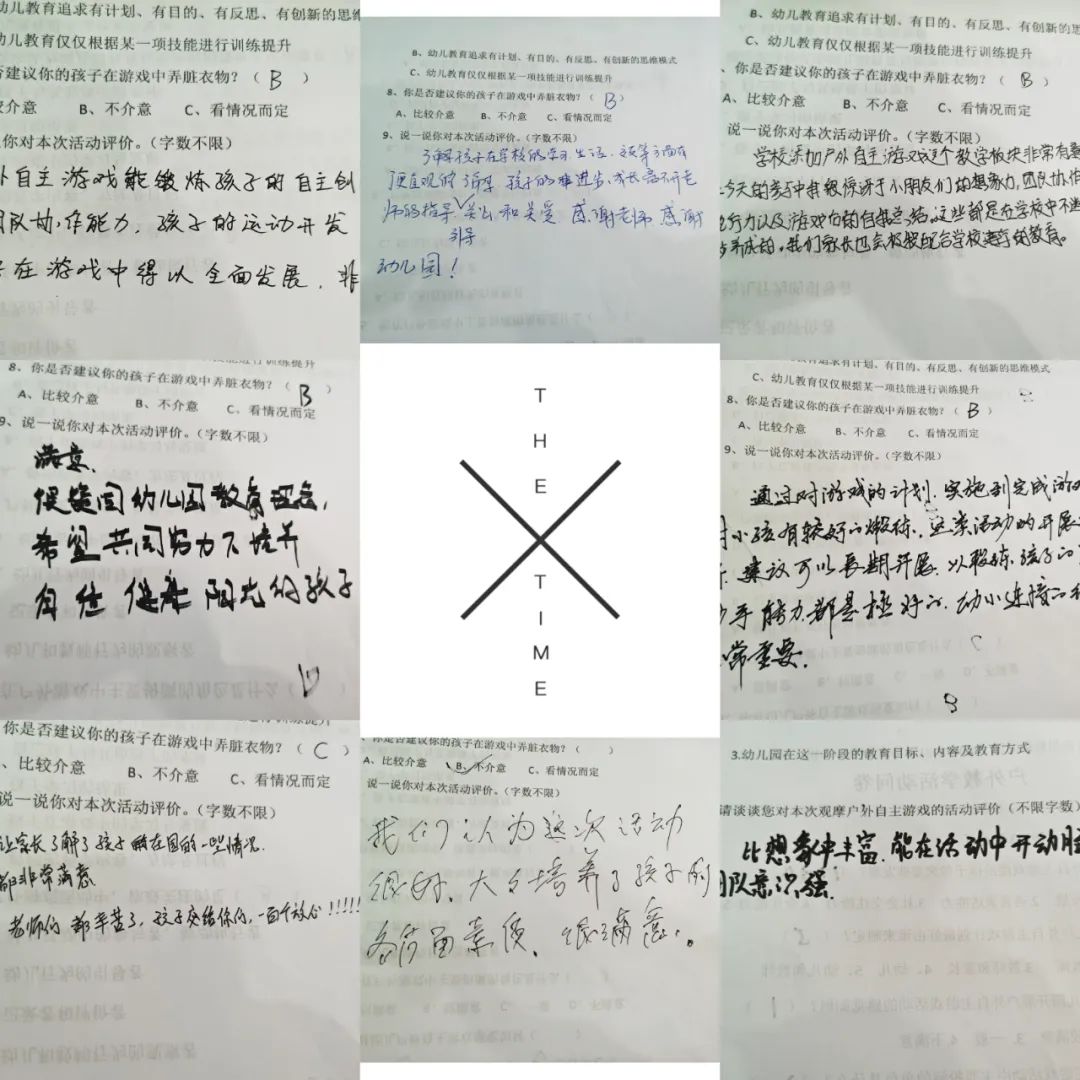 幼儿教育追求有计划、有目的、有反思、有创新的思维
幼儿教育仅仅根据某一项技能进行训练提升
建议你的孩子在游戏中弄脏衣物?( B )
较介意 B、不介意 C、看情况而定
你对本次活动评价。(字数不限)
外自主游戏能锻炼孩子的自主创
团队协作能力,孩子的运动开发
在游戏中得以全面发展,非
B、幼儿教育追求有计划、有目的、有反思、有创新的思维模式
C、幼儿教育仅仅根据某一项技能进行训练提升
8、你是否建议你的孩子在游戏中弄脏衣物?( B )
A、比较介意 B、不介意 C、看情况而定
9、说一说你对本次活动评价。(字数不限)
了解孩子在学校的学习生活
更直观的了解 孩子的进步、成长离不开老
师的指导 关心和关爱 感谢老师 感谢
引导
幼儿园!
B、幼儿教育追求有计划、有目的、有反思、有创新的思
C、幼儿教育仅仅根据某一项技能进行训练提升
、你是否建议你的孩子在游戏中弄脏衣物?( B )
A、比较介意 B、不介意 C、看情况而定
说一说你对本次活动评价。(字数不限)
学校添加户外自主游戏这个教学板块非常有
今天的参与中有很惊讶于小朋友们的想象力,团队协作
行力以及游戏后的自操总结,这些都是在学校中不
养成的。我们家长也会积极配合学校
的教育。
技能进行训练提升
8、你是否建议你的孩子在游戏中弄脏衣物?( B
A、比较介意 B、不介意 C、看情况而定
9、说一说你对本次活动评价。(字数不限)
满意。
很赞同幼儿园教育理念,
希望共同努力下培养
自信 健康 阳光的孩子
THE TIME
教育追求有计划、有目的、有反思、有创新的思维模式
C、幼儿教育仅仅根据某一项技能进行训练提升
8、你是否建议你的孩子在游戏中弄脏衣物?( B )
A、比较介意 B、不介意 C、看情况而定
9、说一说你对本次活动评价。(字数不限)
通过对游戏的计划,实施到完成游
对小孩有较好的锻炼,这类活动的开展
建议可以长期开展,以锻炼孩子的
手能力都是极好的,幼小连接的
常重要。
你是否建议你的孩子在游戏中弄脏衣物?( C )
、比较介意 B、不介意 C、看情况而定
说一说你对本次活动评价。(字数不限)
让家长了解了孩子在园的一些情况。
都非常满意
老师们都辛苦了,孩子交给你们,一百个放心!!!!!
你是否建议你的孩子在游戏中弄脏衣物?( )
A、比较介意 B、不介意 C、看情况而定
说一说你对本次活动评价。(字数不限)
我们认为这次活动
很好,大大培养了孩子的
各方面素质,很满意。
3.幼儿园在这一阶段的教育目标、内容及教育方式
请谈谈您对本次观摩户外自主游戏的活动评价(不限字数)
比想象中丰富,能在活动中开动脑
团队意识强